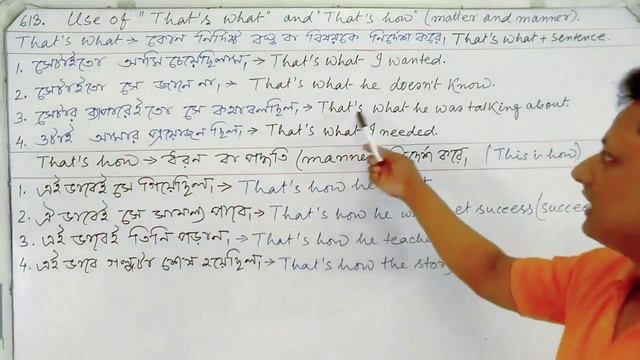 613. Use of "That's what" and "That's how" (matter and manner).
That's what → কোন নির্দিষ্ট বস্তু বা বিষয়কে নির্দেশ করে। That's what + sentence.
1. সেটাইতো আমি চেয়েছিলাম, → That's what I wanted.
2. সেটাইতো সে জানে না, → That's what he doesn't know.
3. সেটার ব্যাপারেইতো সে কথা বলছিল, → That's what he was talking about.
4. ওটাই আমার প্রয়োজন ছিল, → That's what I needed.
That's how → ধরন বা পদ্ধতি (manner) নির্দেশ করে, (This is how)
1. এই ভাবেই সে গিয়েছিল, → That's how he
2. ঐ ভাবেই সে সাফল্য পাবে, → That's how he success (succe
3. এই ভাবেই তিনি পড়ান, → That's how he teache
4. এই ভাবে গল্পটা শেষ হয়েছিল, → That's how the story